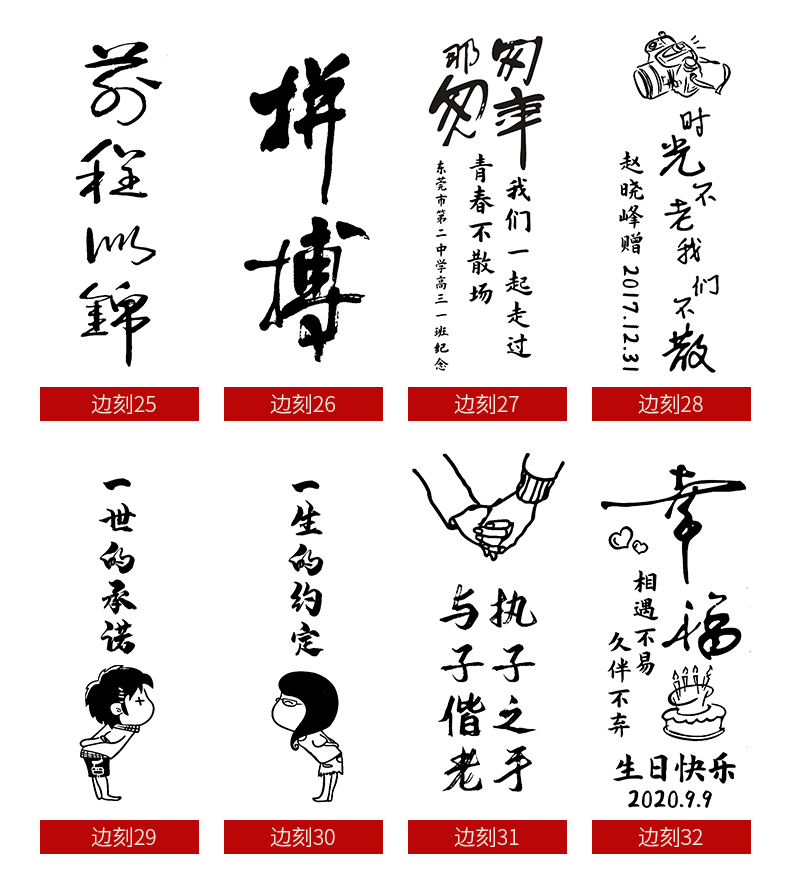 前程似錦
边刻25
拼搏
边刻26
匆匆那年
我们一起走过
青春不散场
东莞市第二中学高三一班纪念
边刻27
时光不老我们不散
赵晓峰赠 2017.12.31
边刻28
一世的承诺
边刻29
一生的约定
边刻30
执子之手
与子偕老
边刻31
幸福
相遇不易
久伴不弃
生日快乐
2020.9.9
边刻32